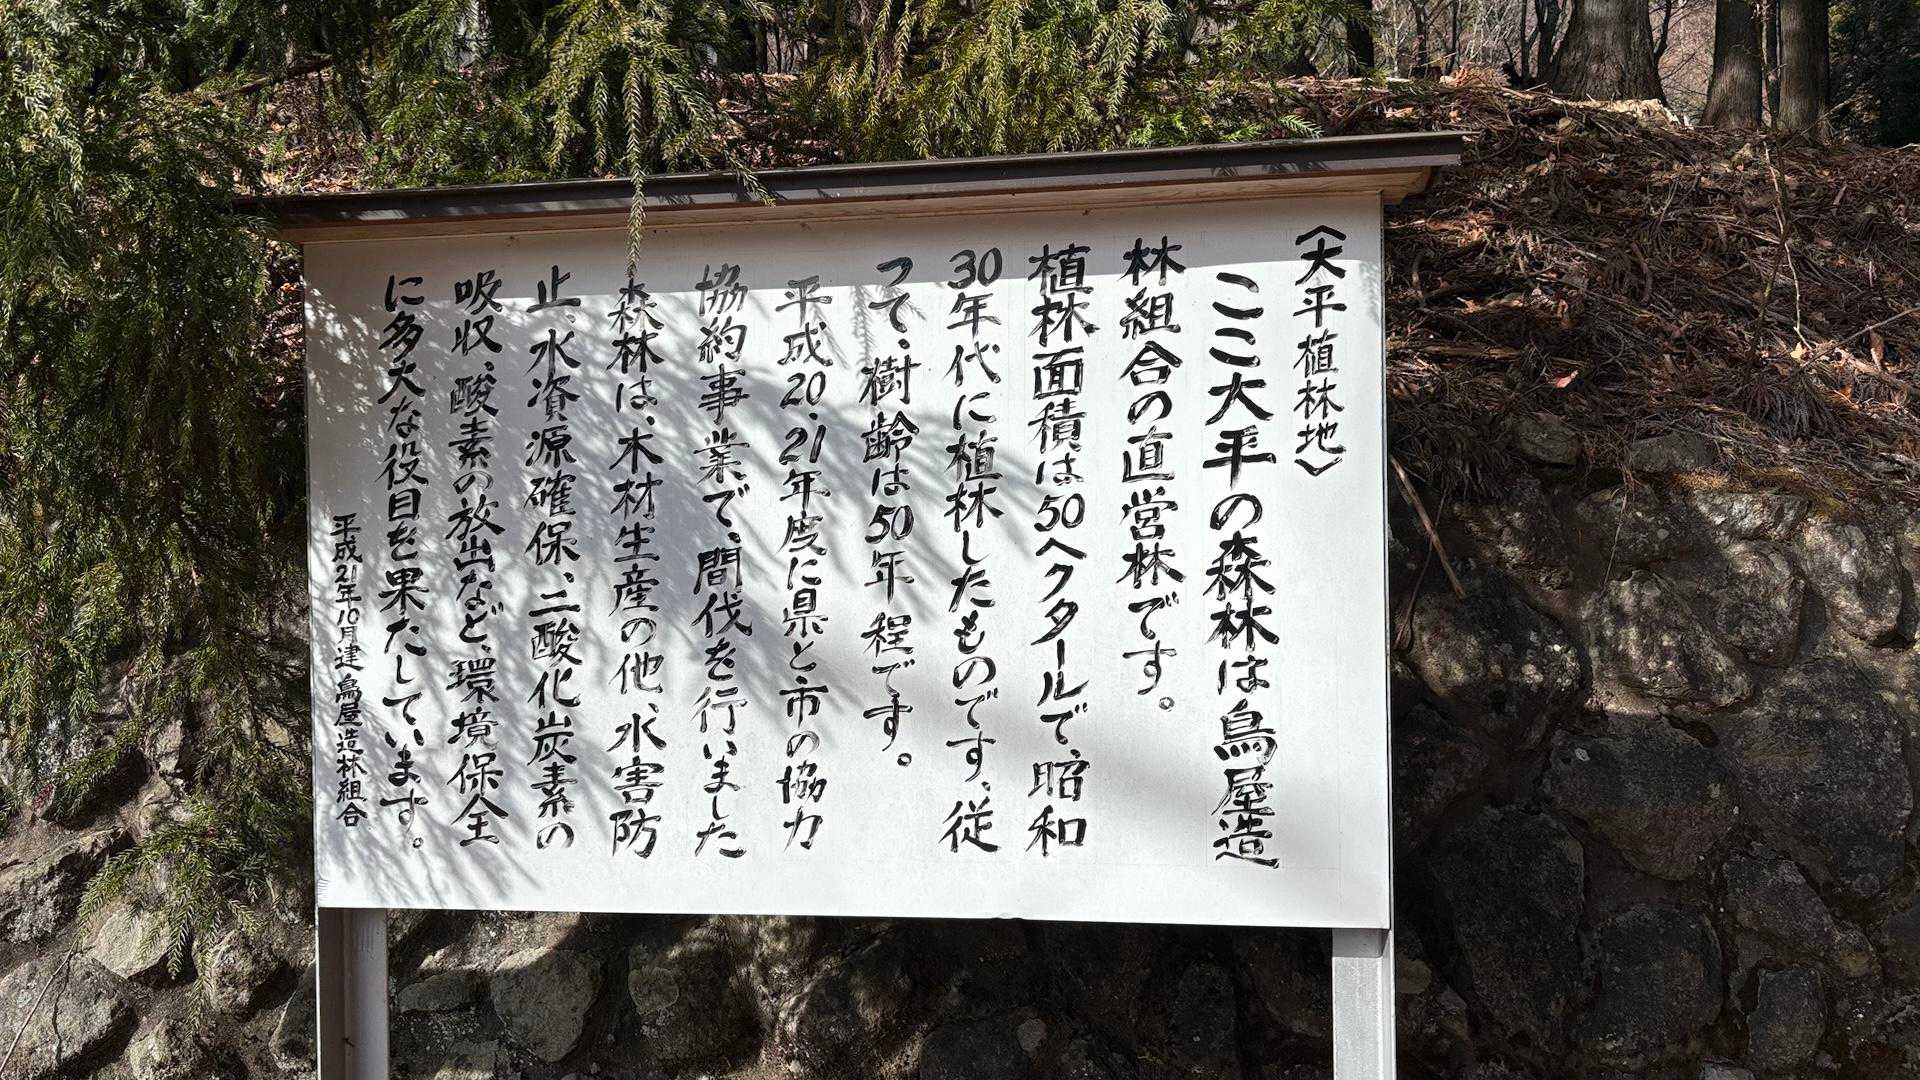 〈大平植林地〉
ここ大平の森林は鳥屋造
林組合の直営林です。
植林面積は50ヘクタールで、昭和
30年代に植林したものです、従
つて、樹齢は50年程です。
平成20、21年度に県と市の協力
協約事業で、間伐を行いました
森林は、木材生産の他、水害防
止、水資源確保、二酸化炭素の
吸収、酸素の放出など、環境保全
に多大な役目を果たしています。
平成21年10月建 鳥屋造林組合